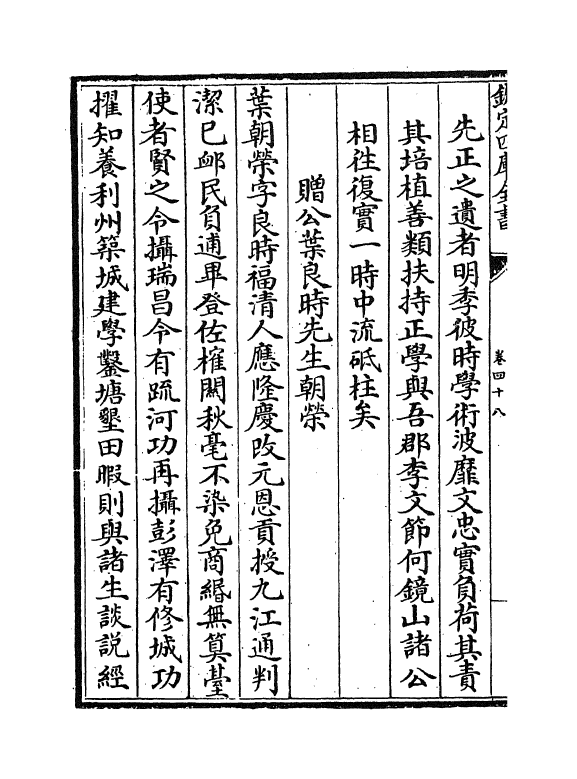 欽定四庫全書
卷四十八
先正之遺者明季彼時學術波靡文忠實負荷其責
其培植善類扶持正學與吾郡李文節何鏡山諸公
相往復實一時中流砥柱矣
贈公葉良時先生朝榮
葉朝榮字良時福清人應隆慶改元恩貢授九江通判
潔已䘏民負逋畢登佐榷關秋毫不染免商緡無算臺
使者賢之令攝瑞昌令有疏河功再攝彭澤有修城功
擢知養利州築城建學鑿塘墾田暇則與諸生談説經